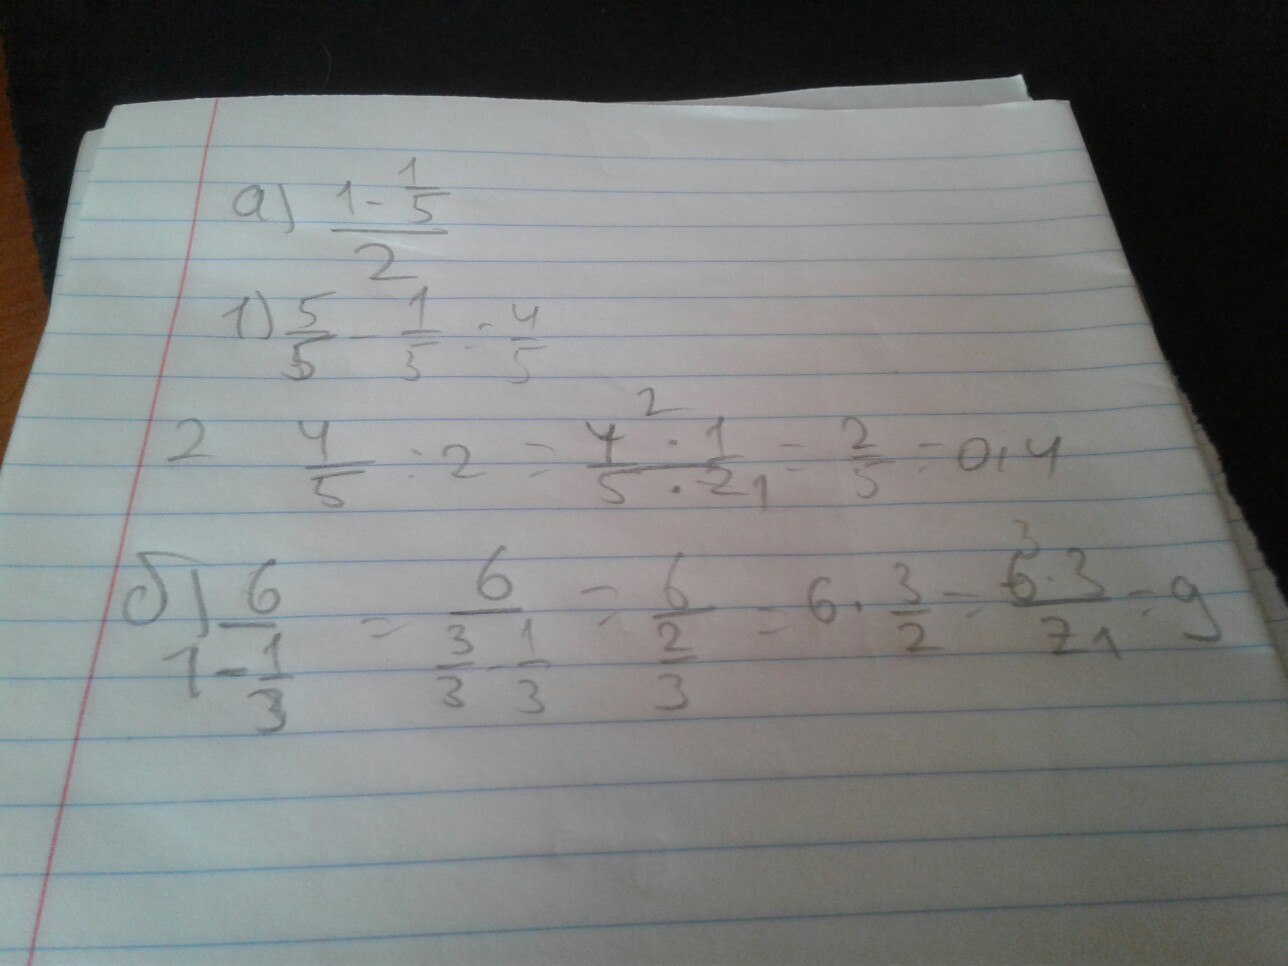 а) (1 - 1/5)/2
1) 5/5 - 1/5 = 4/5
2 4/5 : 2 = (4² · 1)/(5 · 2₁) = 2/5 = 0,4
б) 6/(1 - 1/3) = 6/(3/3 - 1/3) = 6/(2/3) = 6 · 3/2 = (6³ · 3)/2₁ = 9